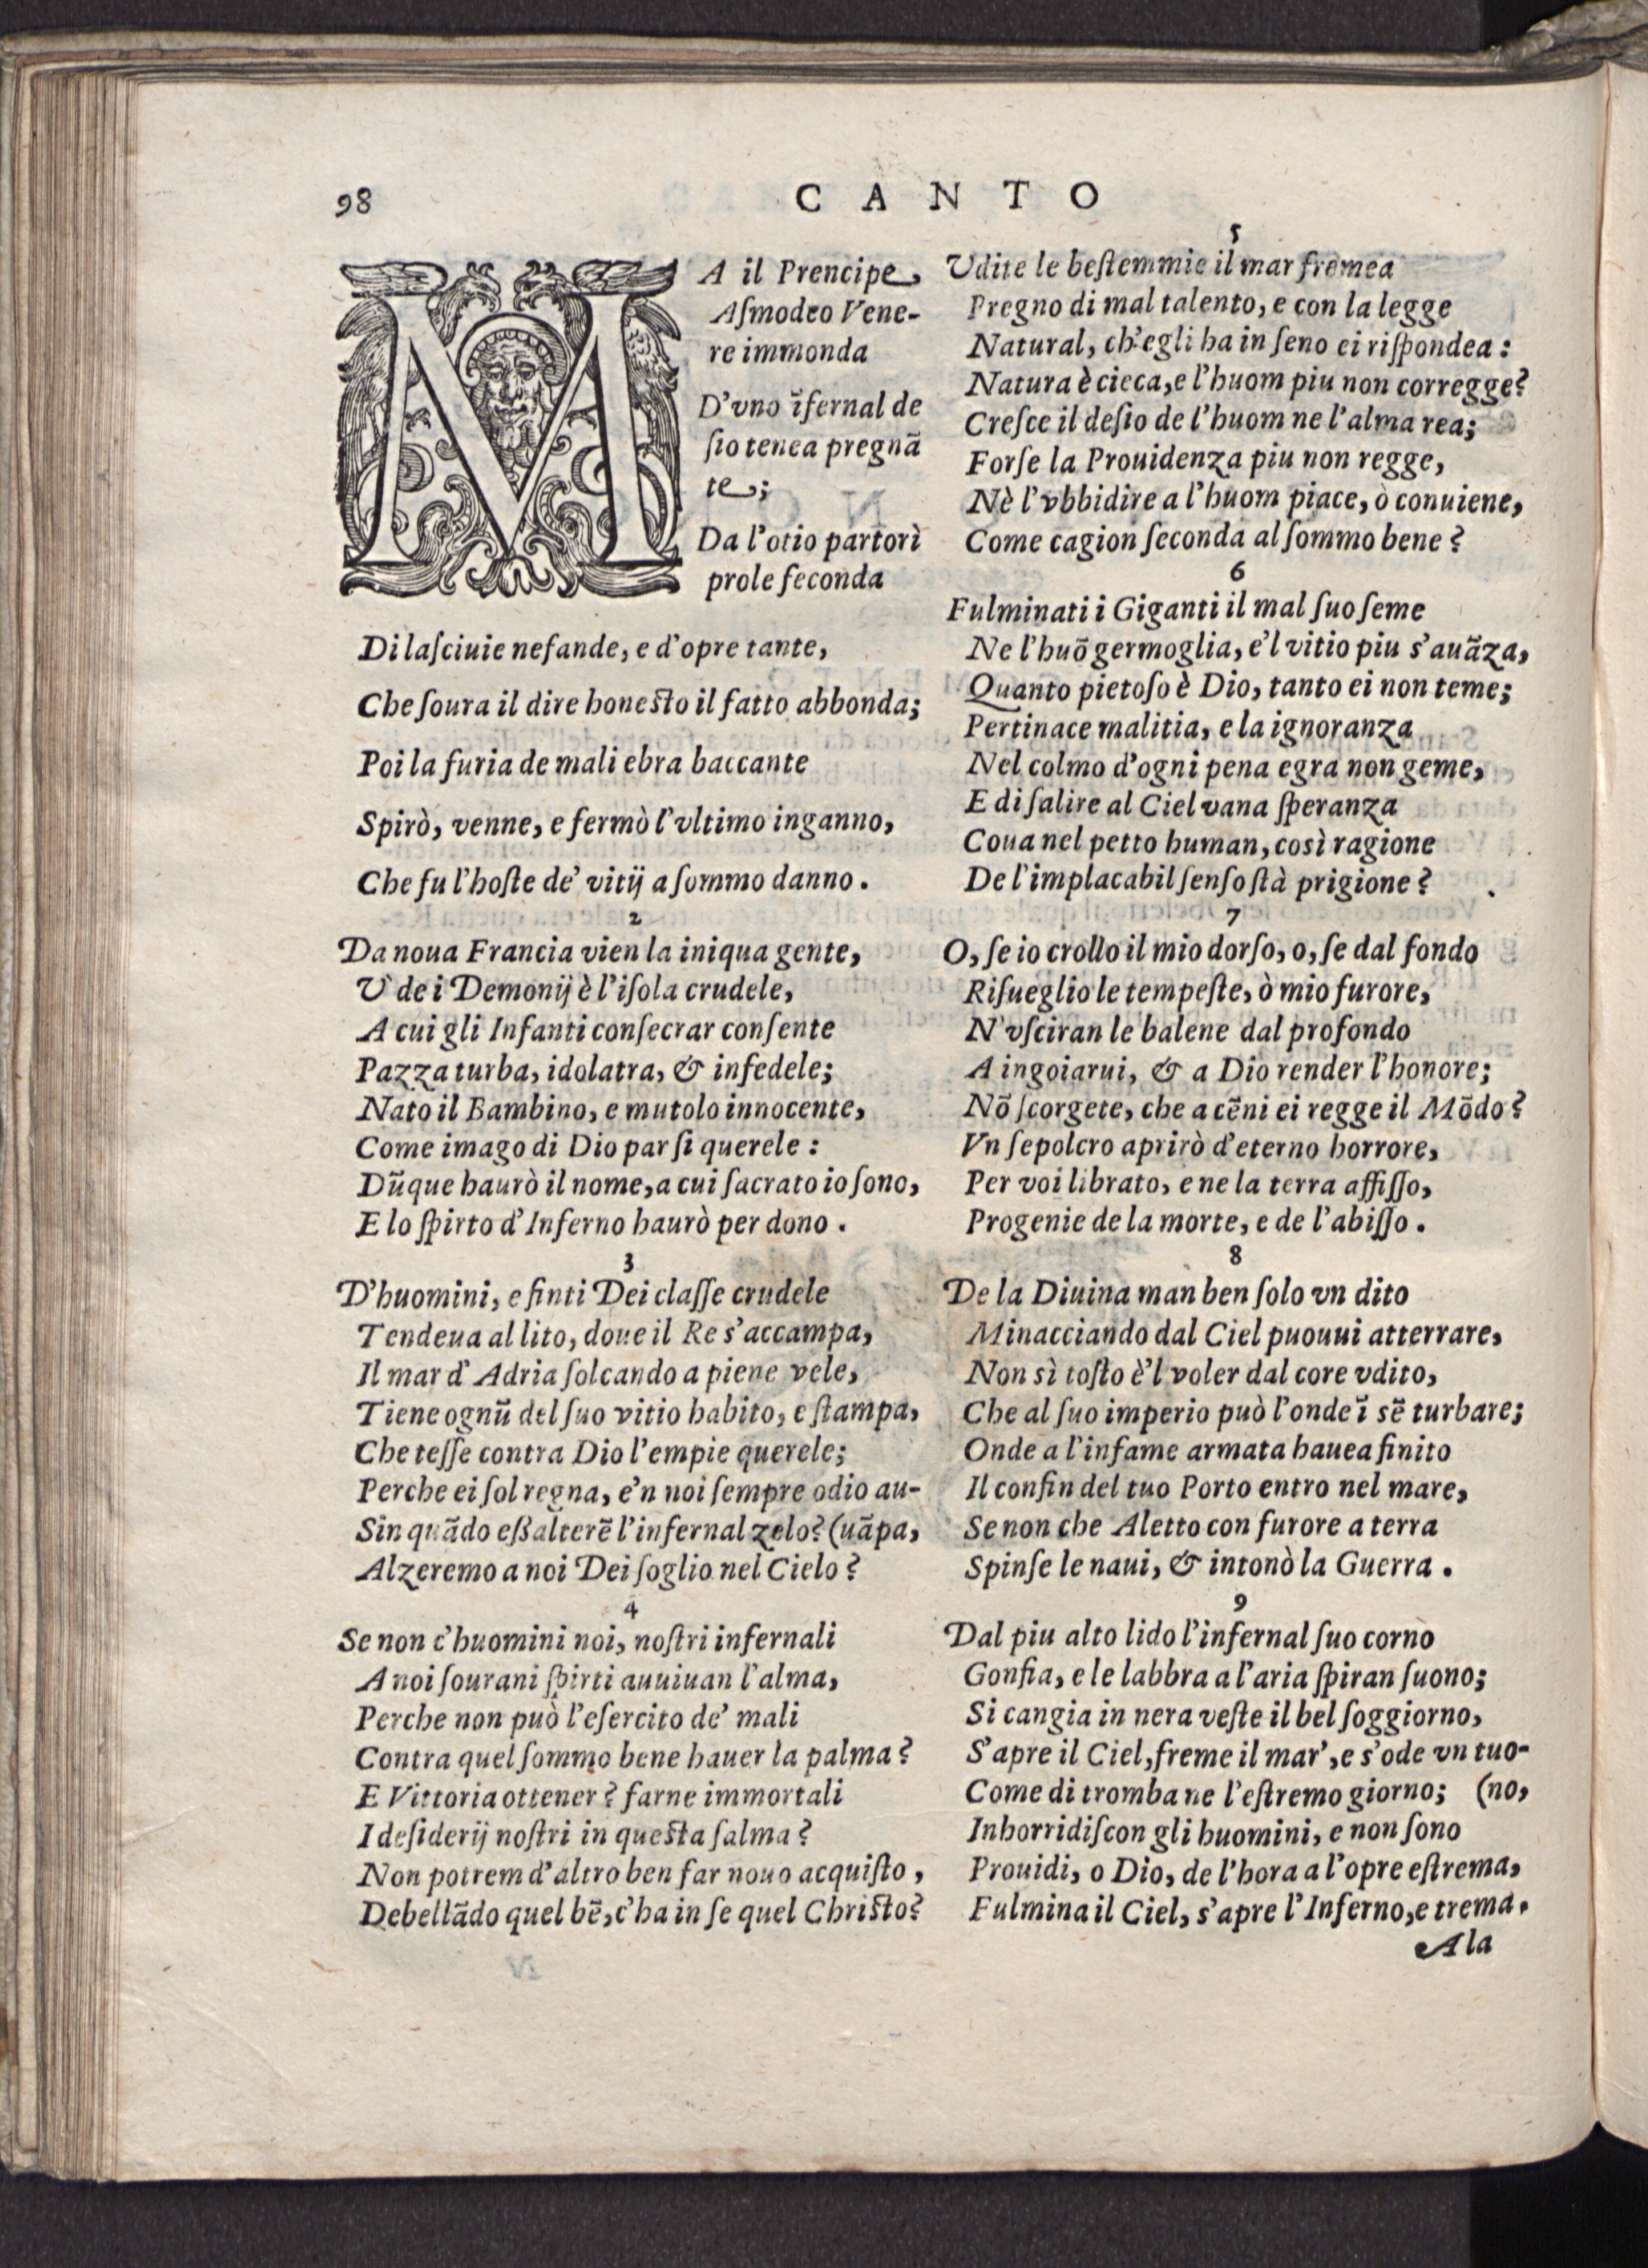 98
CANTO
MA il Prencipe,
Aſmodeo Vene-
re immonda
D'vno ĩfernal de
ſio tenea pregnã
te;
Da l'otio partorì
prole feconda
Di laſciuie nefande, e d'opre tante,
Che ſoura il dire honesto il fatto abbonda;
Poi la furia de mali ebra baccante
Spirò, venne, e fermò l'vltimo inganno,
Che fu l'hoſte de' vitij a ſommo danno.
2
Da noua Francia vien la iniqua gente,
V' de i Demonij è l'iſola crudele,
A cui gli Infanti conſecrar conſente
Pazza turba, idolatra, & infedele;
Nato il Bambino, e mutolo innocente,
Come imago di Dio par ſi querele:
Dũque haurò il nome, a cui ſacrato io ſono,
E lo ſpirto d'Inferno haurò per dono.
3
D'huomini, e finti Dei claſſe crudele
Tendeua al lito, doue il Re s'accampa,
Il mar d'Adria ſolcando a piene vele,
Tiene ognũ del ſuo vitio habito, e ſtampa,
Che teſſe contra Dio l'empie querele;
Perche ei ſol regna, e'n noi ſempre odio au-
Sin quãdo eßalterẽ l'infernal zelo? (uãpa,
Alzeremo a noi Dei ſoglio nel Cielo?
4
Se non c'huomini noi, noſtri infernali
A noi ſourani ſpirti auuiuan l'alma,
Perche non può l'eſercito de' mali
Contra quel ſommo bene hauer la palma?
E Vittoria ottener? farne immortali
I deſiderij noſtri in questa ſalma?
Non potrem d'altro ben far nouo acquiſto,
Debellãdo quel bẽ, c'ha in ſe quel Christo?
5
Vdite le beſtemmie il mar fremea
Pregno di mal talento, e con la legge
Natural, ch'egli ha in ſeno ei riſpondea:
Natura è cieca, e l'huom piu non corregge?
Creſce il deſio de l'huom ne l'alma rea;
Forſe la Prouidenza piu non regge,
Nè l'vbbidire a l'huom piace, ò conuiene,
Come cagion ſeconda al ſommo bene?
6
Fulminati i Giganti il mal ſuo ſeme
Ne l'huõ germoglia, e'l vitio piu s'auãza,
Quanto pietoſo è Dio, tanto ei non teme;
Pertinace malitia, e la ignoranza
Nel colmo d'ogni pena egra non geme,
E di ſalire al Ciel vana ſperanza
Coua nel petto human, così ragione
De l'implacabil ſenſo ſtà prigione?
7
O, ſe io crollo il mio dorſo, o, ſe dal fondo
Riſueglio le tempeſte, ò mio furore,
N'vſciran le balene dal profondo
A ingoiarui, & a Dio render l'honore;
Nõ ſcorgete, che a cẽni ei regge il Mõdo?
Vn ſepolcro aprirò d'eterno horrore,
Per voi librato, e ne la terra affiſſo,
Progenie de la morte, e de l'abiſſo.
8
De la Diuina man ben ſolo vn dito
Minacciando dal Ciel puouui atterrare,
Non sì toſto è'l voler dal core vdito,
Che al ſuo imperio può l'onde ĩ sẽ turbare;
Onde a l'infame armata hauea finito
Il confin del tuo Porto entro nel mare,
Se non che Aletto con furore a terra
Spinſe le naui, & intonò la Guerra.
9
Dal piu alto lido l'infernal ſuo corno
Gonfia, e le labbra a l'aria ſpiran ſuono;
Si cangia in nera veſte il bel ſoggiorno,
S'apre il Ciel, freme il mar', e s'ode vn tuo-
Come di tromba ne l'eſtremo giorno; (no,
Inhorridiſcon gli huomini, e non ſono
Prouidi, o Dio, de l'hora a l'opre eſtrema,
Fulmina il Ciel, s'apre l'Inferno, e trema.
A la